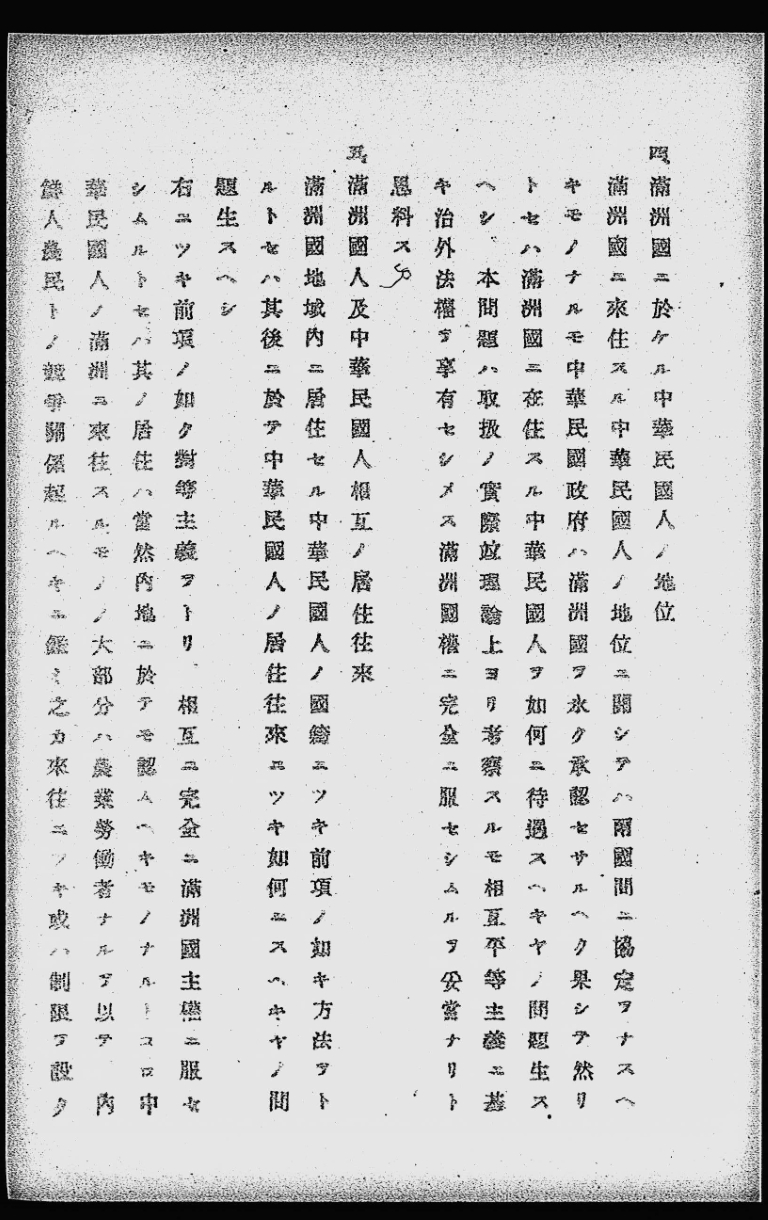 四、滿洲國ニ於ケル中華民國人ノ地位
滿洲國ニ來住スル中華民國人ノ地位ニ關シテハ兩國間ニ協定ヲナスヘ
キモノナルモ中華民國政府ハ滿洲國ヲ永ク承認セサルヘク果シテ然リ
トセハ滿洲國ニ在住スル中華民國人ヲ如何ニ待遇スヘキヤノ問題生ス
ヘシ、本問題ハ取扱ノ實際竝理論上ヨリ考察スルモ相互平等主義ニ基
キ治外法權ヲ享有セシメス滿洲國權ニ完全ニ服セシムルヲ妥當ナリト
思料ス
五、滿洲國人及中華民國人相互ノ居住往來
滿洲國地域內ニ居住セル中華民國人ノ國籍ニツキ前項ノ如キ方法ヲト
ルトセハ其後ニ於テ中華民國人ノ居住往來ニツキ如何ニスヘキヤノ問
題生スヘシ
右ニツキ前項ノ如ク對等主義ヲトリ、相互ニ完全ニ滿洲國主權ニ服セ
シムルトセハ其ノ居住ハ當然內地ニ於テモ認ムヘキモノナルトコロ中
華民國人ノ滿洲ニ來往スルモノノ大部分ハ農業勞働者ナルヲ以テ 內
鮮人農民トノ競爭關係起ルヘキニ鑑ミ之カ來往ニツキ或ハ制限ヲ設ク